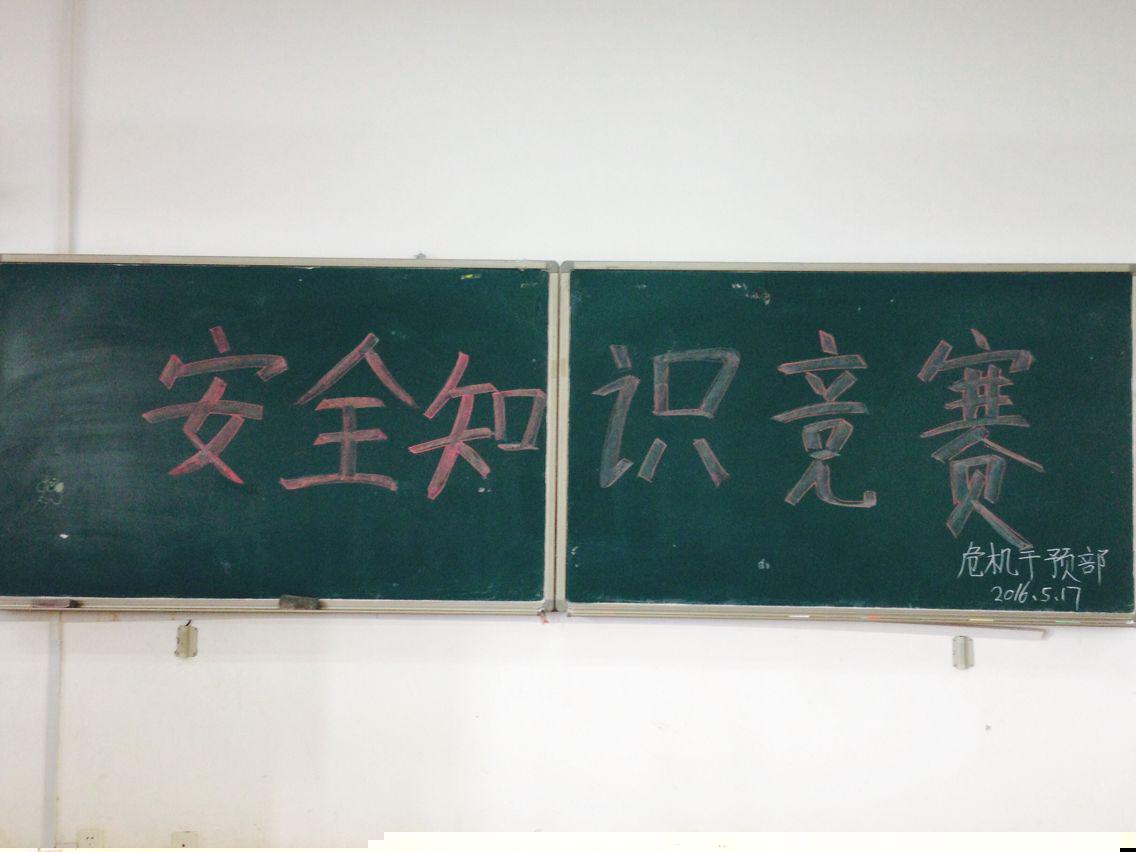 安全知识竞赛
危机干预部
2016.5.17